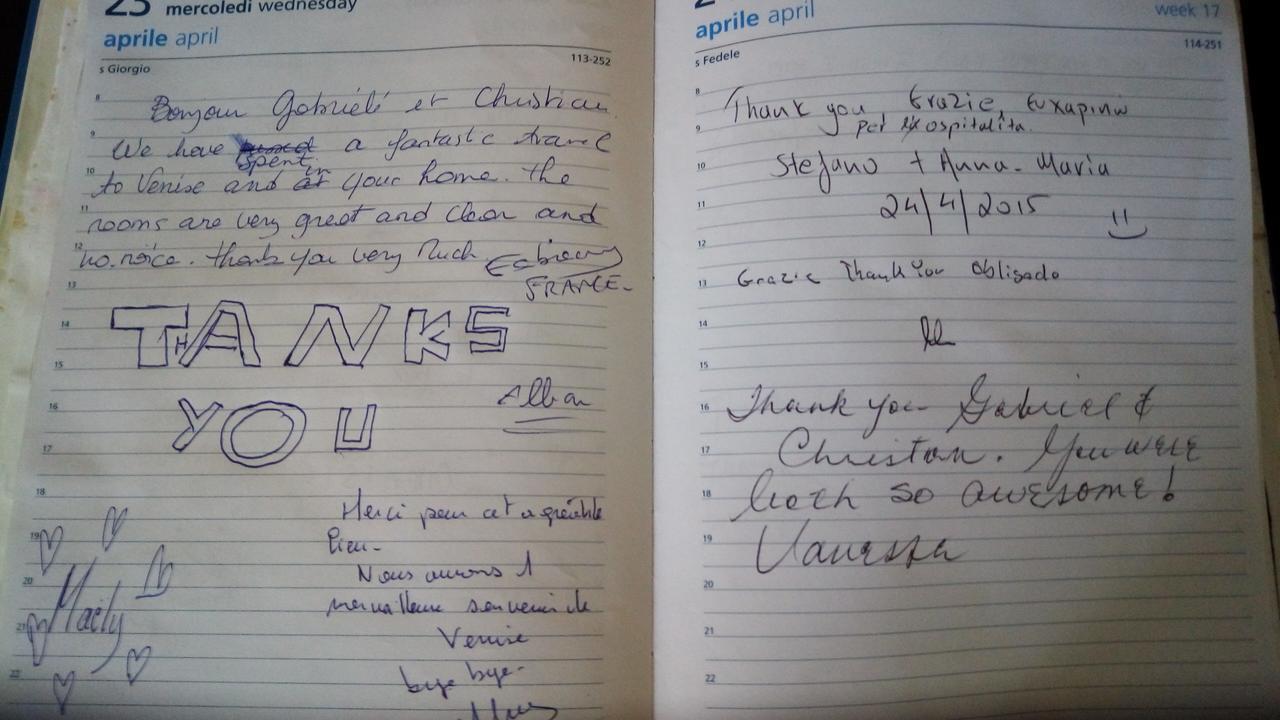 23 mercoledì wednesday
aprile april
s Giorgio 113-252
8
Bonjour Gabriélé et Christian
9
We have spent a fantastic travel
10
to Venise and in your home. the
11
rooms are very great and clean and
12
no noice. thank you very Much
13
FRANCE-
14
THANKS
15
16
YOU Alban
17
18
Merci pour cet agréable
19
lieu-
20
Nous aurons 1
Maëly
21
merveilleux souvenir de
Venise
22
bye bye-
aprile april week 17
s Fedele 114-251
8
Thank you Grazie, Ευχαριστώ
9
per ospitalita.
10
Stefano + Anna-Maria
11
24/4/2015
12
13
Grazie Thank You Obligado
14
15
16
Thank you Gabriel &
17
Christian. You were
18
both so awesome!
19
Vanessa
20
21
22